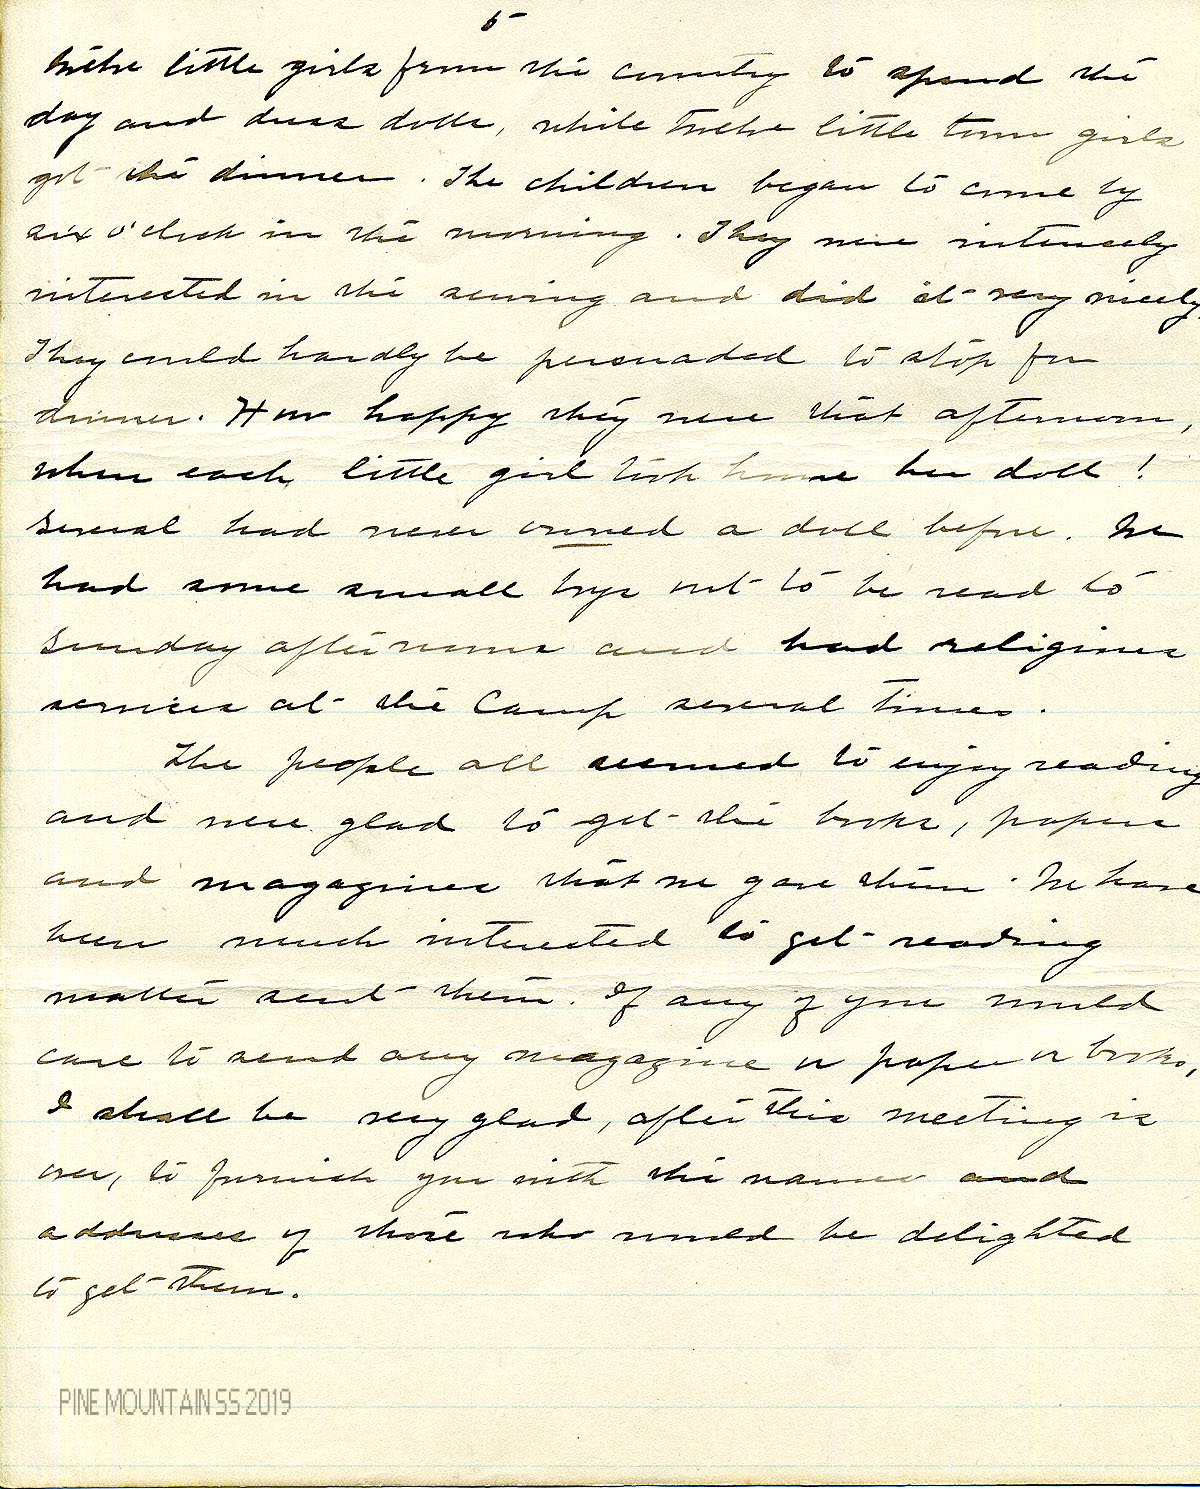 5
twelve little girls from the country to spend the
day and dress dolls, while twelve little town girls
got the dinner. The children began to come by
six o'clock in the morning. They were intensely
interested in the sewing and did it very nicely.
They could hardly be persuaded to stop for
dinner. How happy they were that afternoon,
when each little girl took home her doll!
Several had never owned a doll before. We
had some small boys out to be read to
Sunday afternoons and had religious
services at the Camp several times.
The people all seemed to enjoy reading
and were glad to get the books, papers
and magazines that we gave them. We have
been much interested to get reading
matter sent them. If any of you would
care to send any magazine or paper or books,
I shall be very glad, after this meeting is
over, to furnish you with the names and
addresses of those who would be delighted
to get them.
PINE MOUNTAIN SS 2019